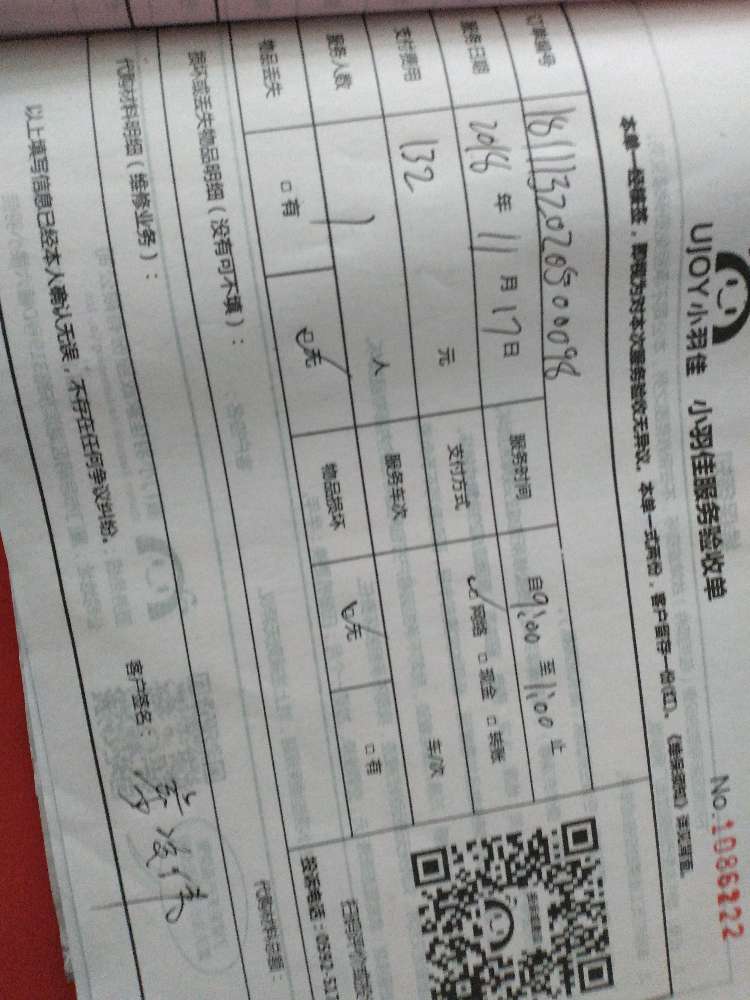 UJOY小羽佳 小羽佳服务验收单
No.1086222
本单一经签签，即视为对本次服务验收无异议。本单一式两份，客户留存一份(红)。
订单编号 1811132020500098
服务日期 2018年11月17日 服务时间 自9:00至1:00止
支付费用 132 元 支付方式 网络 □现金 □转账
服务人数 1 人 服务车次 车/次
物品丢失 □有 无 物品损坏 无 □有
损坏或丢失物品明细（没有可不填）：
代购材料明细（维修业务）：
代购材料总额：
投诉电话：0592-517
以上填写信息已经本人确认无误，不存在任何争议纠纷。
客户签名：